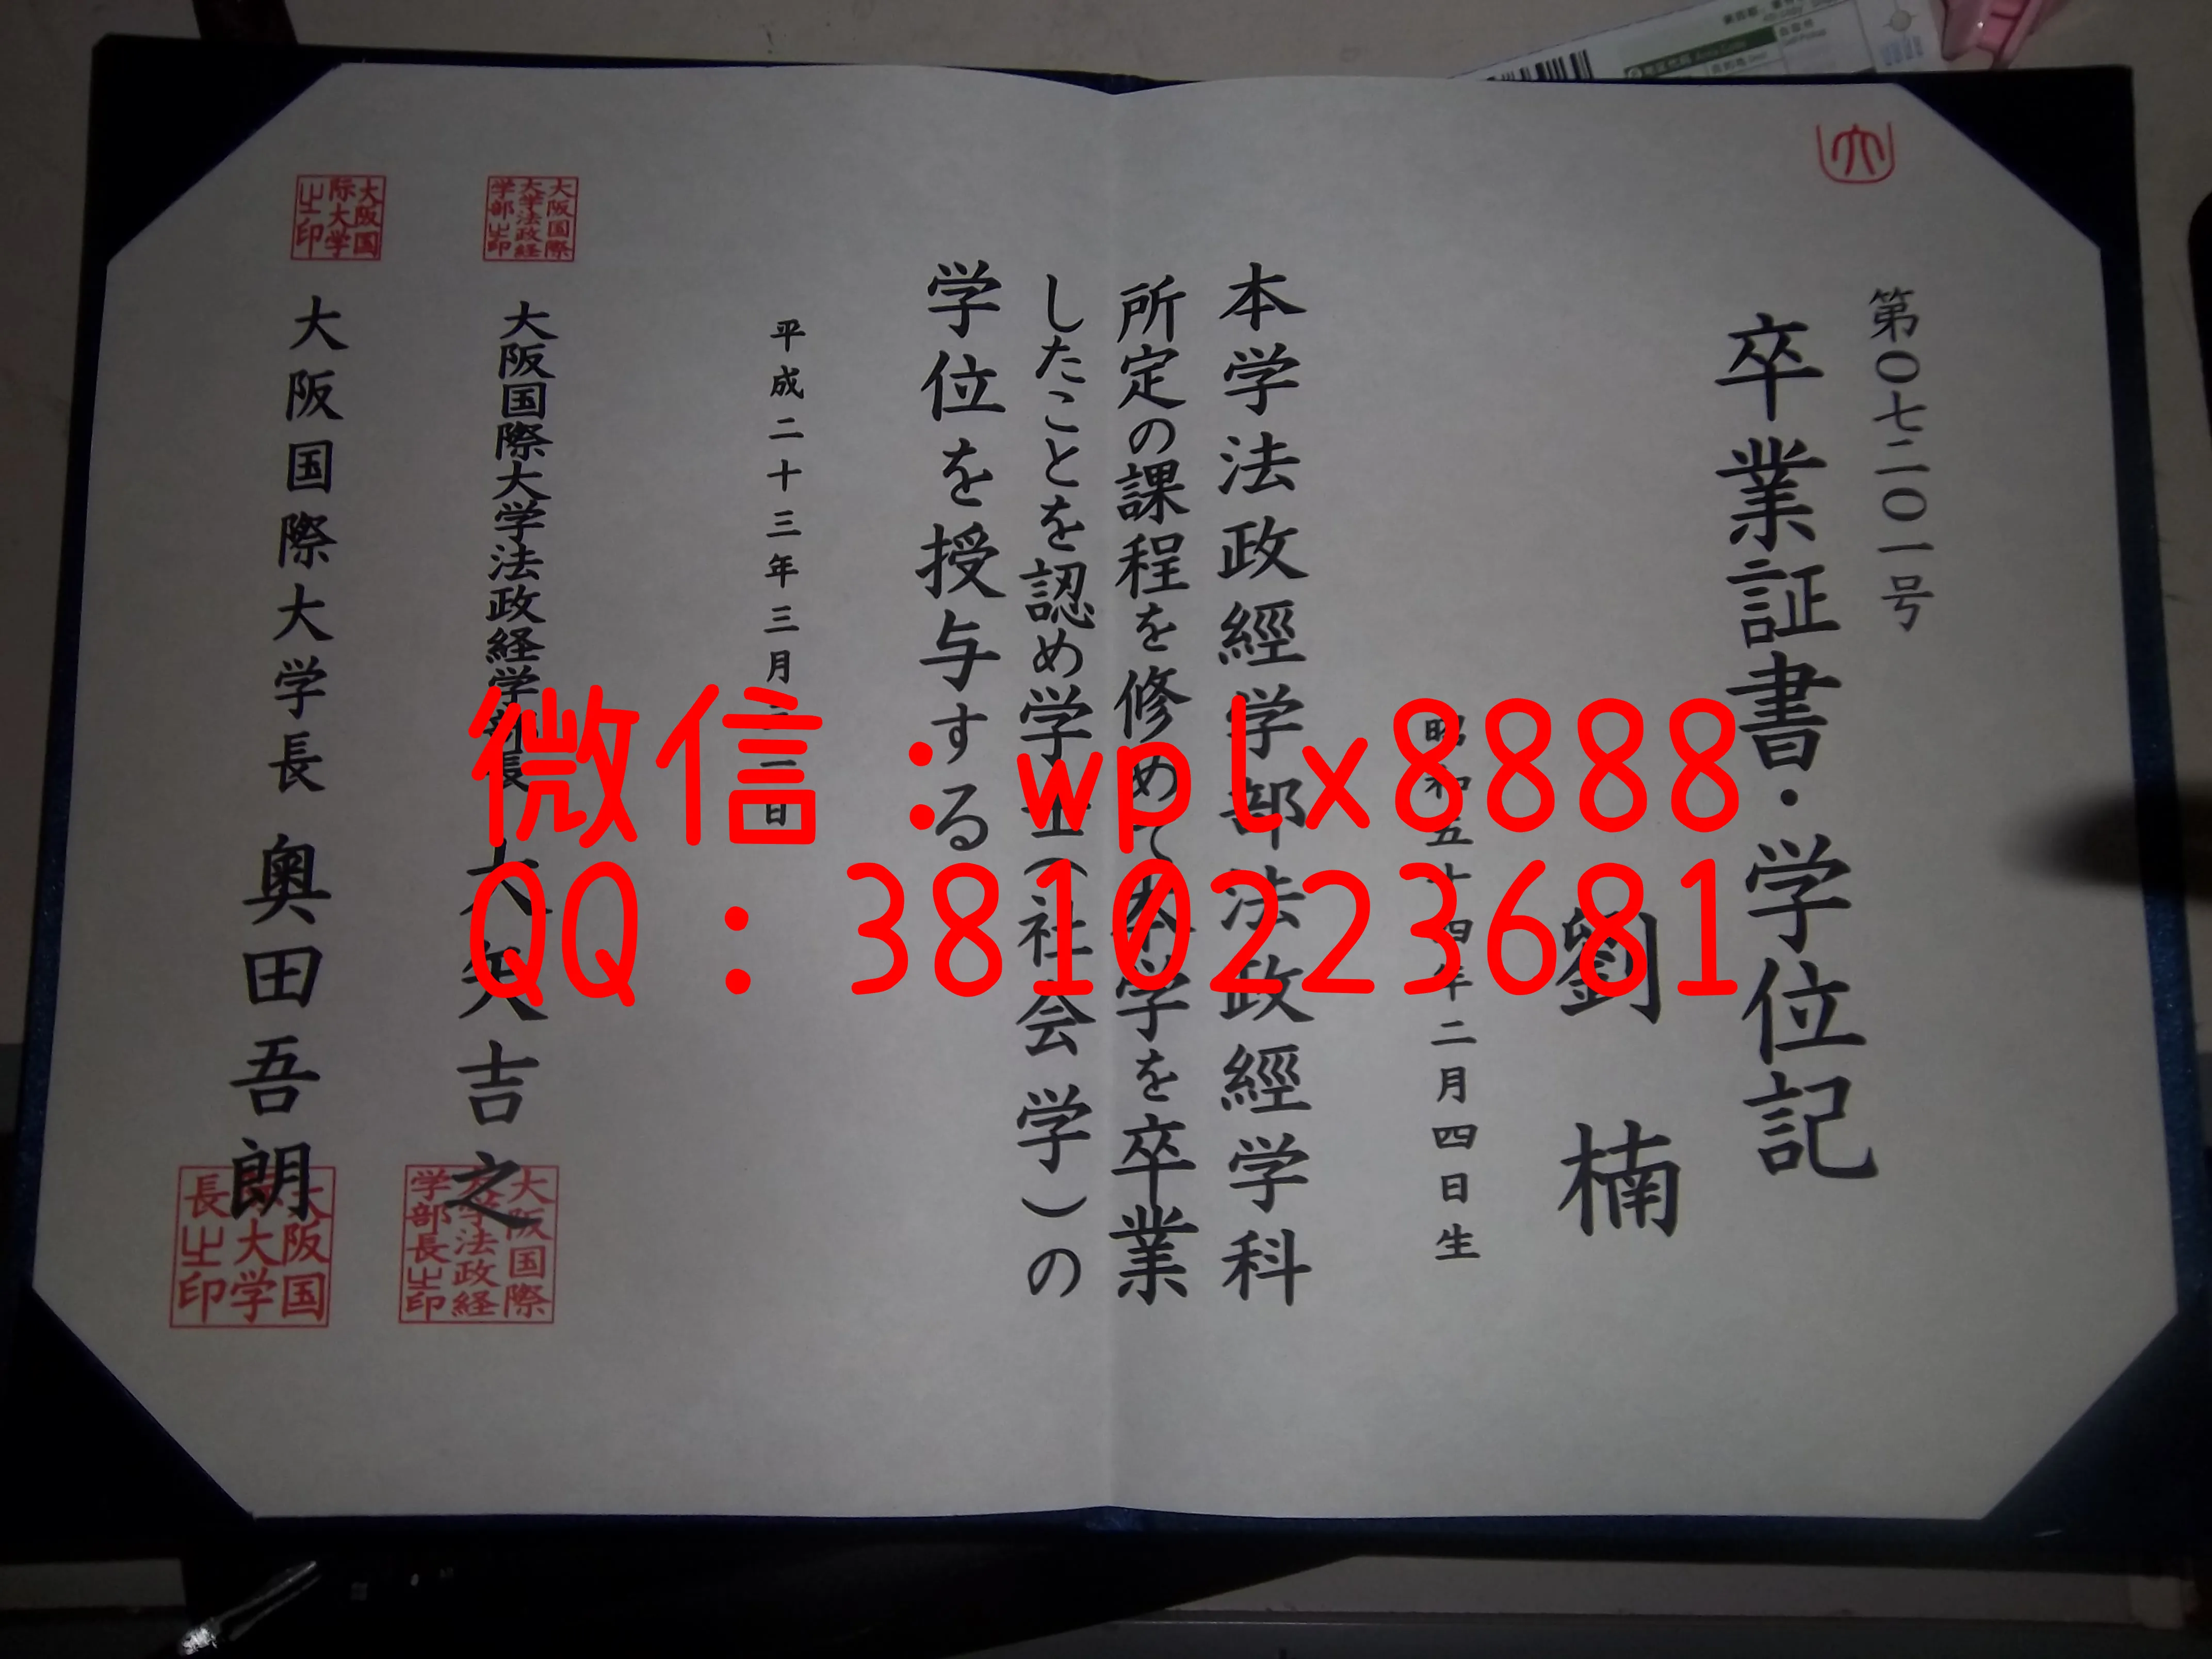 第〇七二〇一号
卒業証書・学位記
劉 楠
昭和五十四年二月四日生
本学法政經学部法政經学科
所定の課程を修めて本学を卒業
したことを認め学士（社会学）の
学位を授与する
平成二十三年三月 日
大阪国際大学法政経学部長 大矢吉之
大阪国際大学長 奥田吾朗
大阪国際大学法政経学部之印
大阪国际大学之印
大阪国際大学法政経学部長之印
大阪国 大学長之印
微信：wplx8888
QQ：3810223681